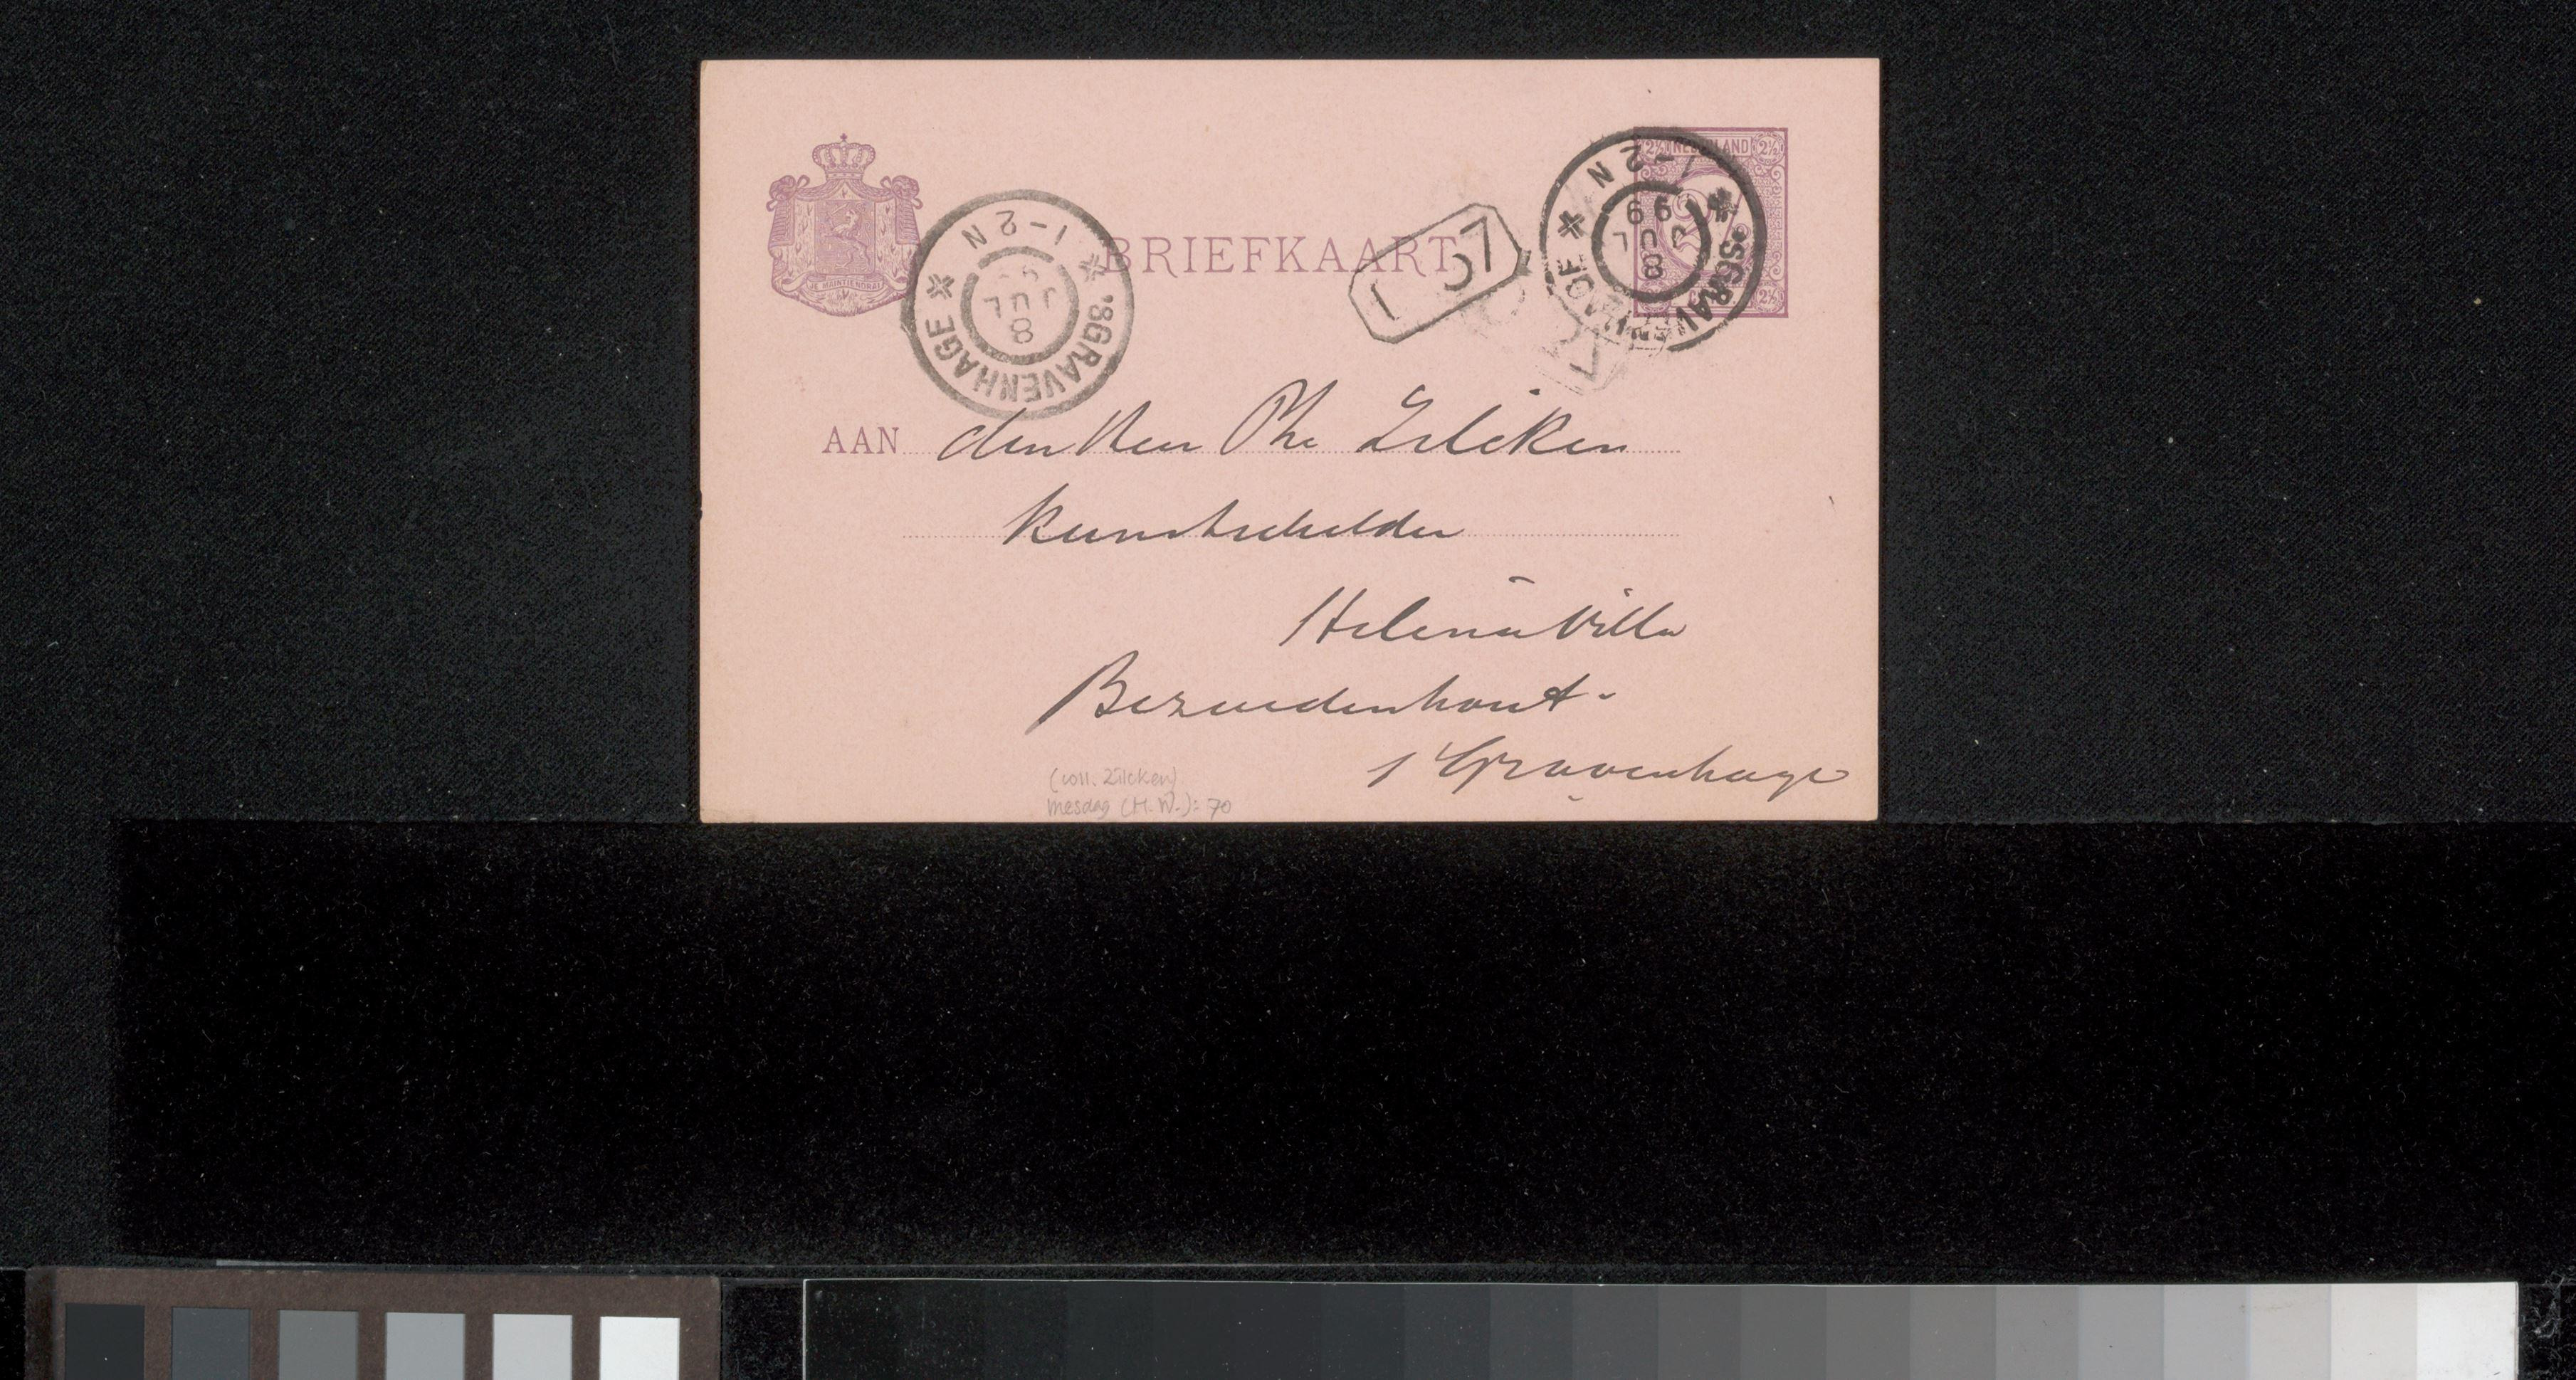 2½ NEDERLAND 2½
1-2N
99
JUL
8
'SGRAVENHAGE
JE MAINTIENDRAI
1-2N
JUL
8
'SGRAVENHAGE
BRIEFKAART
AAN den Heer Ph Zilcken
Kunstschilder
Helena Villa
Bezuidenhout-
s Gravenhage
(coll. Zilcken)
Mesdag (H.W.): 70